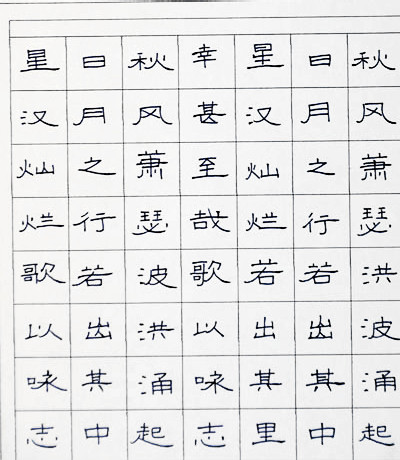 秋风萧瑟洪波涌起
日月之行若出其中
星汉灿烂若出其里
幸甚至哉歌以咏志
秋风萧瑟波洪涌起
日月之行若出其中
星汉灿烂歌以咏志